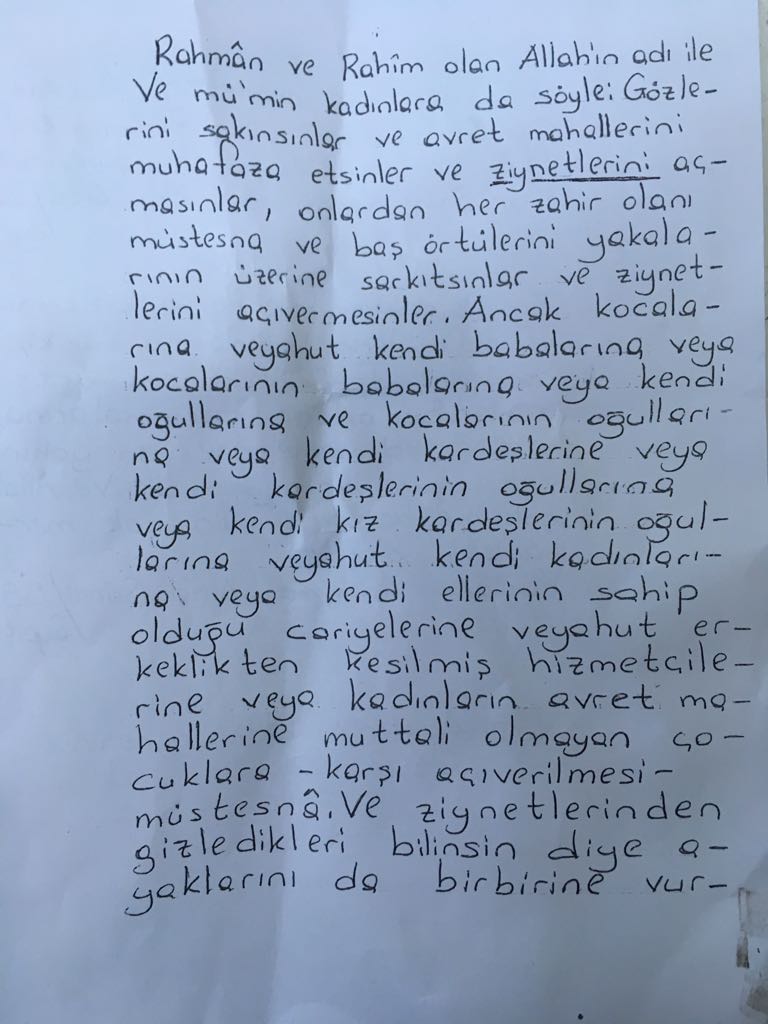 Rahmân ve Rahîm olan Allah'ın adı ile
Ve mü'min kadınlara da söyle: Gözle-
rini sakınsınlar ve avret mahallerini
muhafaza etsinler ve ziynetlerini aç-
masınlar, onlardan her zahir olanı
müstesna ve baş örtülerini yakala-
rının üzerine sarkıtsınlar ve ziynet-
lerini açıvermesinler. Ancak kocala-
rına veyahut kendi babalarına veya
kocalarının babalarına veya kendi
oğullarına ve kocalarının oğulları-
na veya kendi kardeşlerine veya
kendi kardeşlerinin oğullarına
veya kendi kız kardeşlerinin oğul-
larına veyahut kendi kadınları-
na veya kendi ellerinin sahip
olduğu cariyelerine veyahut er-
keklikten kesilmiş hizmetçile-
rine veya kadınların avret ma-
hallerine muttali olmayan ço-
cuklara - karşı açıverilmesi-
müstesnâ. Ve ziynetlerinden
gizledikleri bilinsin diye a-
yaklarını da birbirine vur-